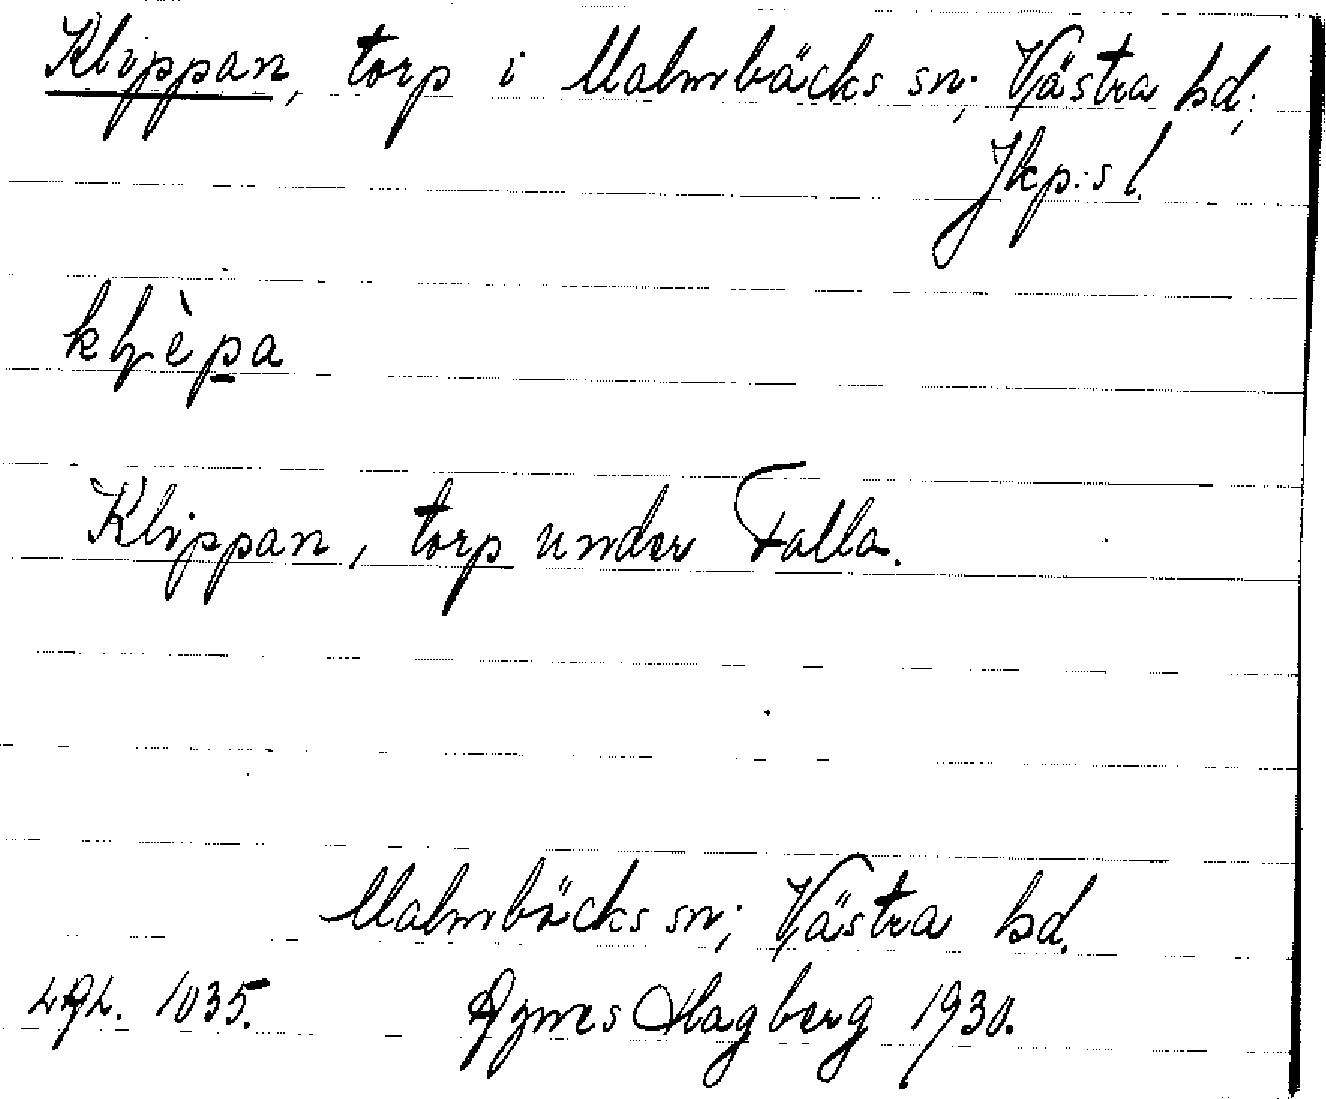 Klippan, torp i Malmbäcks sn; Västra hd;
Jkp:s l.
kljèpa
Klippan, torp under Falla.
Malmbäcks sn; Västra hd.
1035.
Agnes Hagberg 1930.